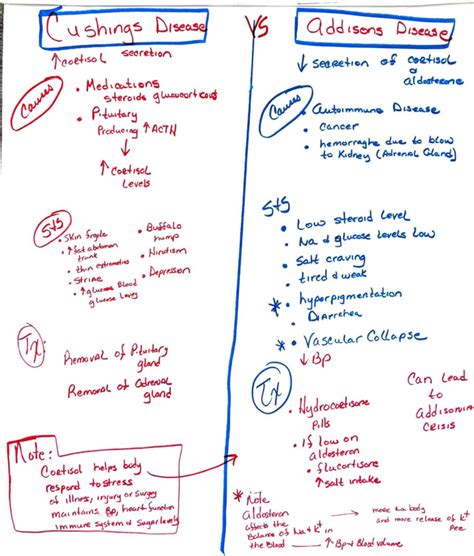 Cushings Disease
VS
Addisons Disease
↑cortisol secretion
Causes
• Medications
steroids glucocorticoid
• Pituitary
Producing ↑ACTH
↑Cortisol
Levels
S+S
• Skin fragile
• ↑fat abdomen
trunk
• thin extremeties
• Striae
• ↑glucose Blood
glucose Level
• Buffalo
hump
• Hirutism
• Depression
Tx:
Removal of Pituitary
gland
Removal of Adrenal
gland
Note:
Cortisol helps body
respond to stress
of illness, injury or surgery
maintains BP, heart function
immune system & sugar levels
↓ secretion of cortisol
&
aldosterone
Causes
• Autoimmune Disease
• Cancer
• hemorraghe due to blow
to Kidney (Adrenal Gland)
S+S
• Low steroid level
• Na & glucose levels low
• Salt craving
• tired & weak
* • hyperpigmentation
Diarrahea
* • Vascular Collapse
↓BP
Tx
• Hydrocortisone
Pills
• If low on
aldosteron
• flucortisone
↑ salt intake
Can Lead
to
Addisonian
CRISIS
* Note
Aldosteron
affects the
Balance of Na+ K+
in the Blood
more Na body
and more release of K+
Pee
↑ BP + Blood volume